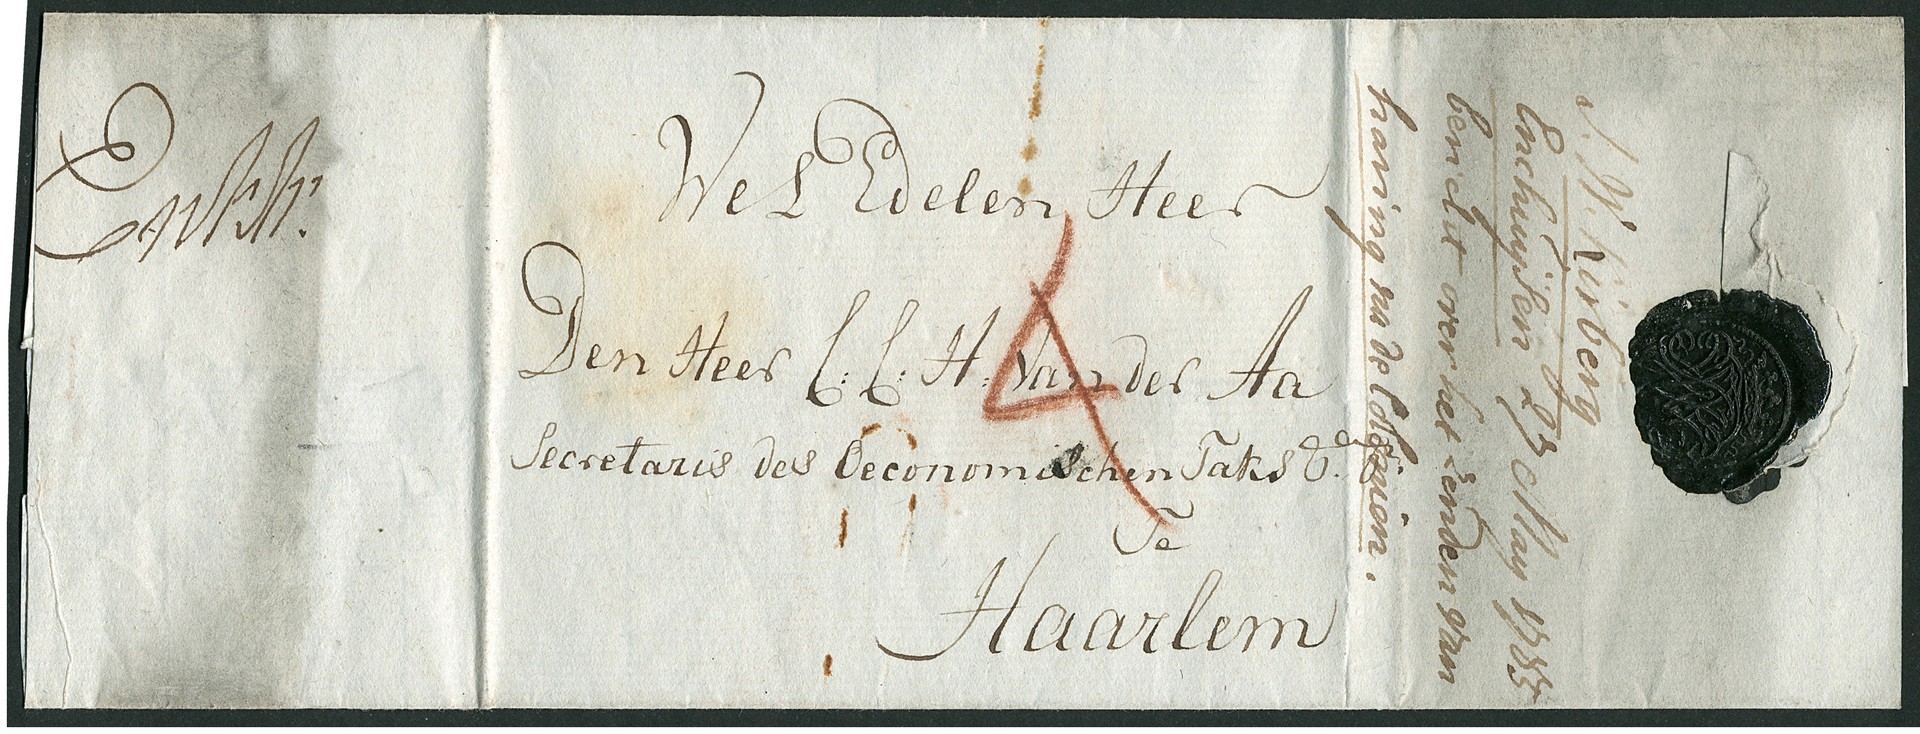 Wel Edelen Heer
Den Heer C: C: H: Van der Aa
Secretaris des Oeconomischen Taks &. &.
Te
Haarlem
4
J. W. Kirberg
Enchuijsen 23 May 1785
bericht over het zenden van
haring na de Colonien.